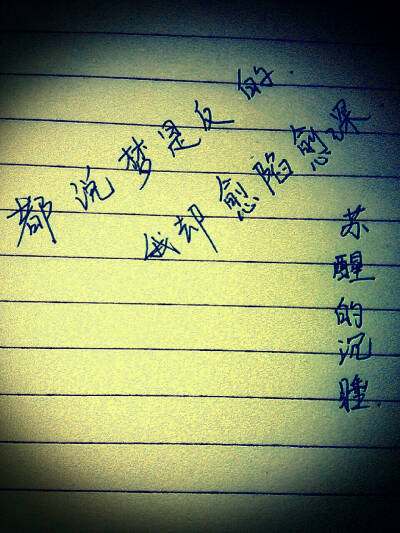 都说梦是反的.
我却愈陷愈深
苏醒的沉睡.